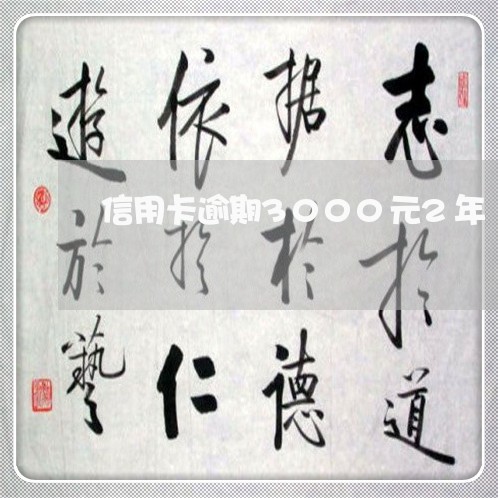 志於道
据於德
依於仁
遊於藝
信用卡逾期3000元2年